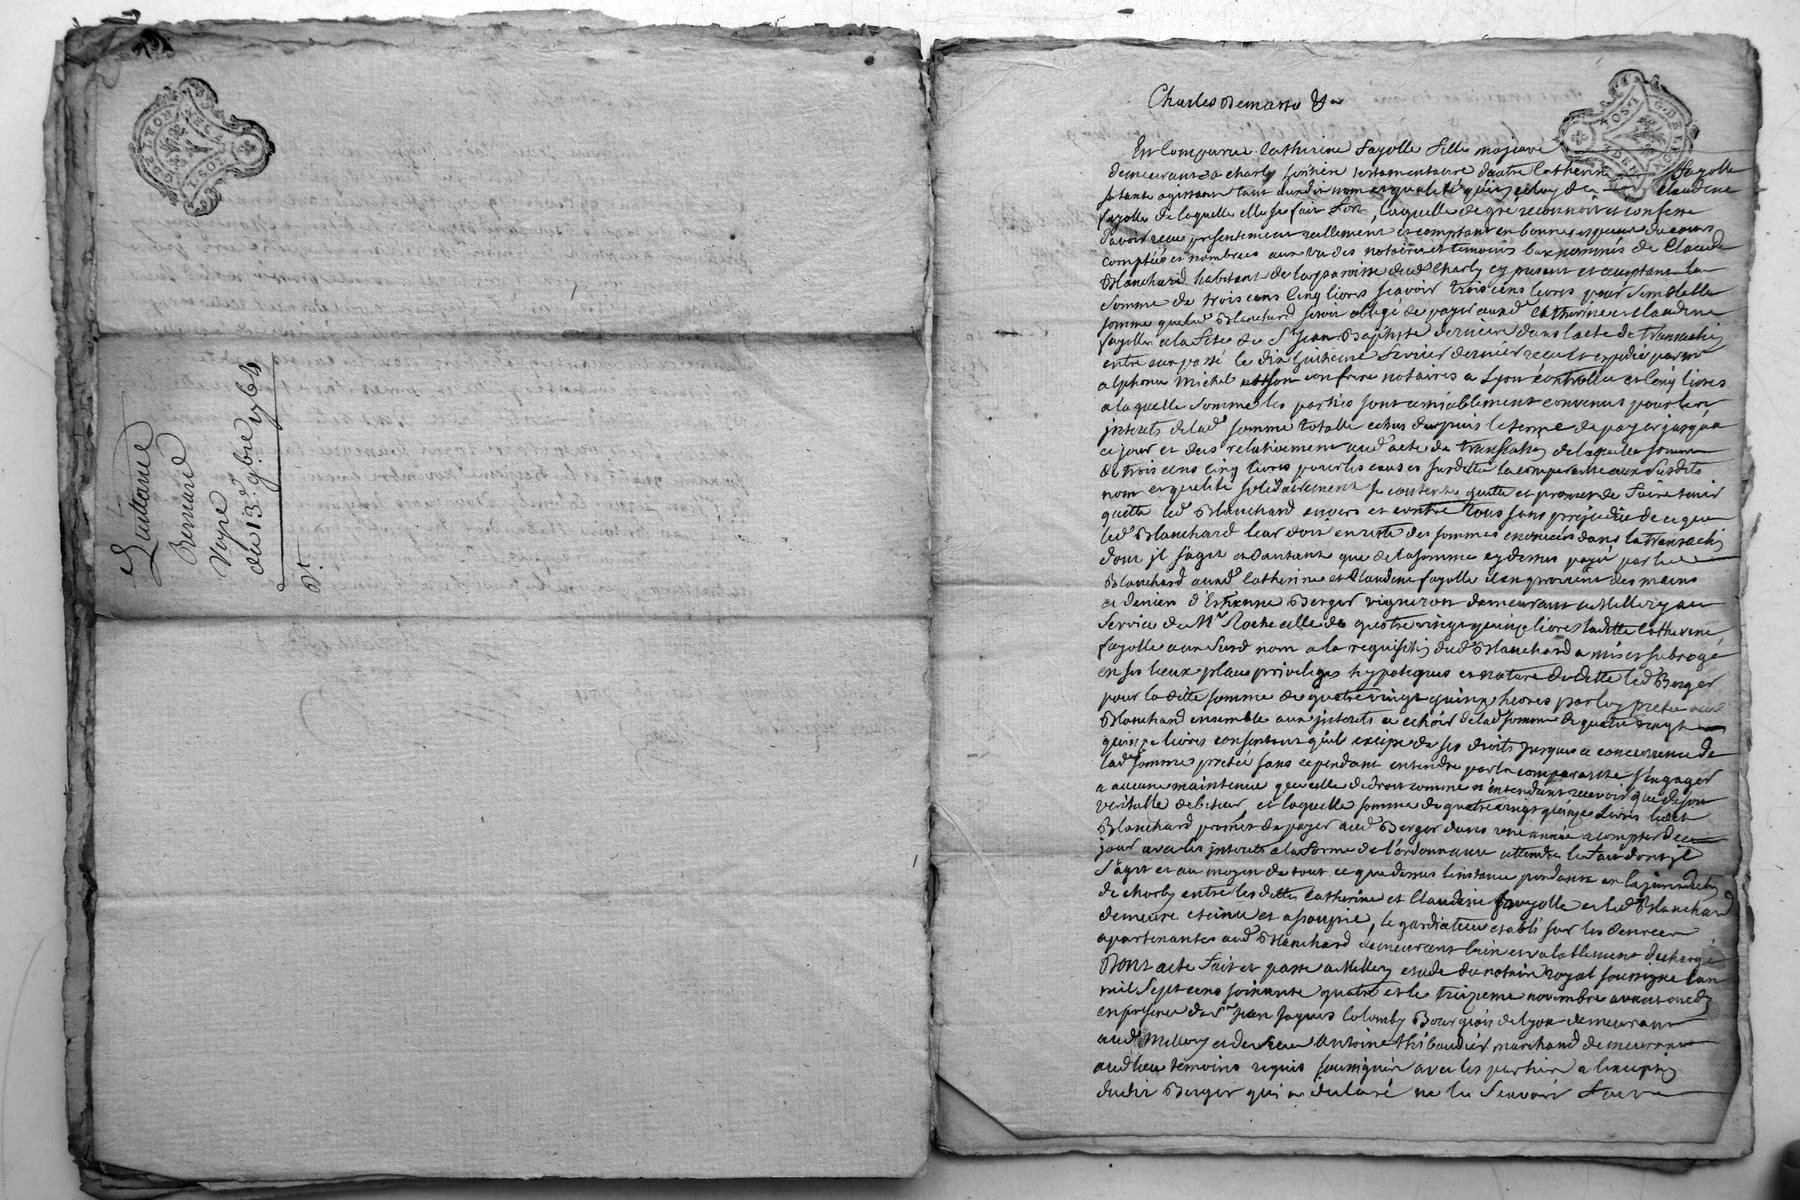 Quittance
Bernard
Voyre
du 13e 9bre 1764
Charles Demarre
Est Comparue Catherine Fayolle fille majeure
demeurant a Charly heritiere testamentaire d'autre Catherine Fayolle
sa tante agissant tant audit nom et qualité qu'en celuy de Claudine
fayolle de laquelle elle se fait fort, laquelle de gré reconnoit et confesse
d'avoir reçu presentement reellement et comptant en bonnes especes du cours
comptées et nombrées aux vu des notaire et temoins bas nommés de Claude
Blanchard habitant de la paroisse dud Charly cy present et acceptant la
Somme de trois cens Cinq livres sçavoir trois cens livres pour semblable
somme que led Blanchard seroit obligé de payer auxd Catherine et Claudine
fayolle a la fête de St Jean Baptiste derniere dans l'acte de transaction
entre eux passé le dix huitieme fevrier dernier reçu et expedié par me
alphonse michel et son confrere notaires a Lyon controllé et Cinq livres
a laquelle somme les parties sont amiablement convenus pour les
interets de lad somme totalle echus depuis le terme de payer jusqu'a
ce jour et dus relativement aud acte de transaction de laquelle somme
de trois cens Cinq livres pour les causes susdittes la comparante aux susdits
nom et qualité solidairement se contente quitte et promet de faire tenir
quitte led Blanchard envers et contre tous sans prejudice de ce que
led Blanchard leur doit en reste des sommes enoncées dans la transaction
dont il s'agit et d'autant que de la somme cy dessus payé par led
Blanchard auxd Catherine et Claudine fayolle il en provient des mains
et deniers d'Estienne Berger vigneron demeurant a Millery au
service de Mr Roche celle de quatre vingt quinze livres laditte Catherine
fayolle aux susd nom a la requisition dud Blanchard a mis et subrogé
en ses lieux place privileges hypoteques et nature de dette led Berger
pour la ditte somme de quatre vingt quinze livres par luy preté aud
Blanchard ensemble aux interets a echoir de lad somme de quatre vingt
quinze livres consentant qu'il excipe de ses droits jusques a concurrence de
lad somme pretée sans cependant entendre par la comparante s'engager
a aucune maintenue que celle de droit comme n'entendant recevoir que de son
veritable debiteur et laquelle somme de quatre vingt quinze livres ledit
Blanchard promet de payer aud Berger dans une année a compter de ce
jour avec les interets a la forme de l'ordonnance attendu le fait dont il
s'agit et au moyen de tout ce que dessus l'instance pendante en la jurisdiction
de Charly entre les dittes Catherine et Claudine fayolle et led Blanchard
demeure eteinte et assoupie, le gardiateur etabli sur les denrées
apartenantes aud Blanchard demeurent bien et valablement dechargé
Dont acte fait et passé a Millery etude du notaire royal soussigné l'an
mil sept cens soixante quatre et le treizieme novembre avant midy
en presence de Sr Jean Jaques Colomby Bourgeois de Lyon demeurant
aud Millery et de sieur Antoine Thibaudier marchand demeurant
aud lieu temoins requis soussignés avec les parties a l'exception
dudit Berger qui a declaré ne le sçavoir faire